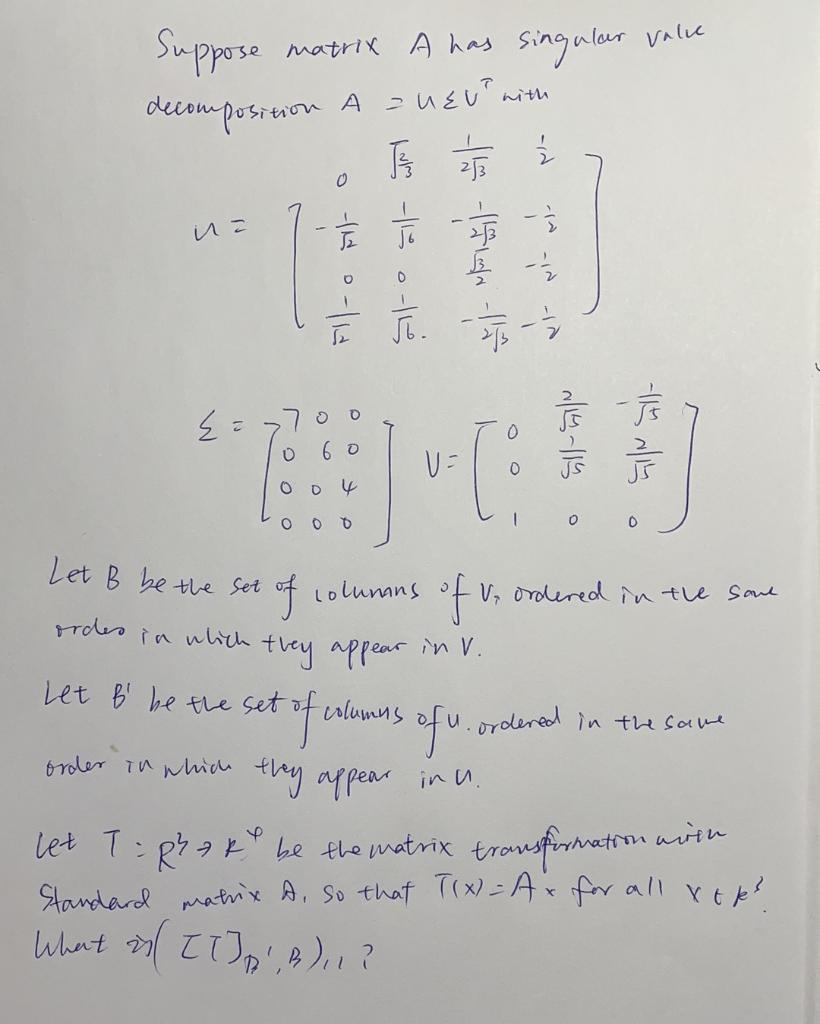 Suppose matrix A has singular value
decomposition A = UΣV^T with
0 √(2/3) 1/(2√3) 1/2
U = [ -1/√2 1/√6 -1/(2√3) -1/2
0 0 √3/2 -1/2
1/√2 1/√6. -1/(2√3) -1/2 ]
Σ = [ 7 0 0
0 6 0
0 0 4
0 0 0 ]
V = [ 0 2/√5 -1/√5
0 1/√5 2/√5
1 0 0 ]
Let B be the set of columns of V, ordered in the same
order in which they appear in V.
Let B' be the set of columns of U. ordered in the same
order in which they appear in U.
Let T: R^3 → R^4 be the matrix transformation with
Standard matrix A, so that T(x) = Ax for all x ∈ R^3.
What is ([T]_{B',B})_{11}?